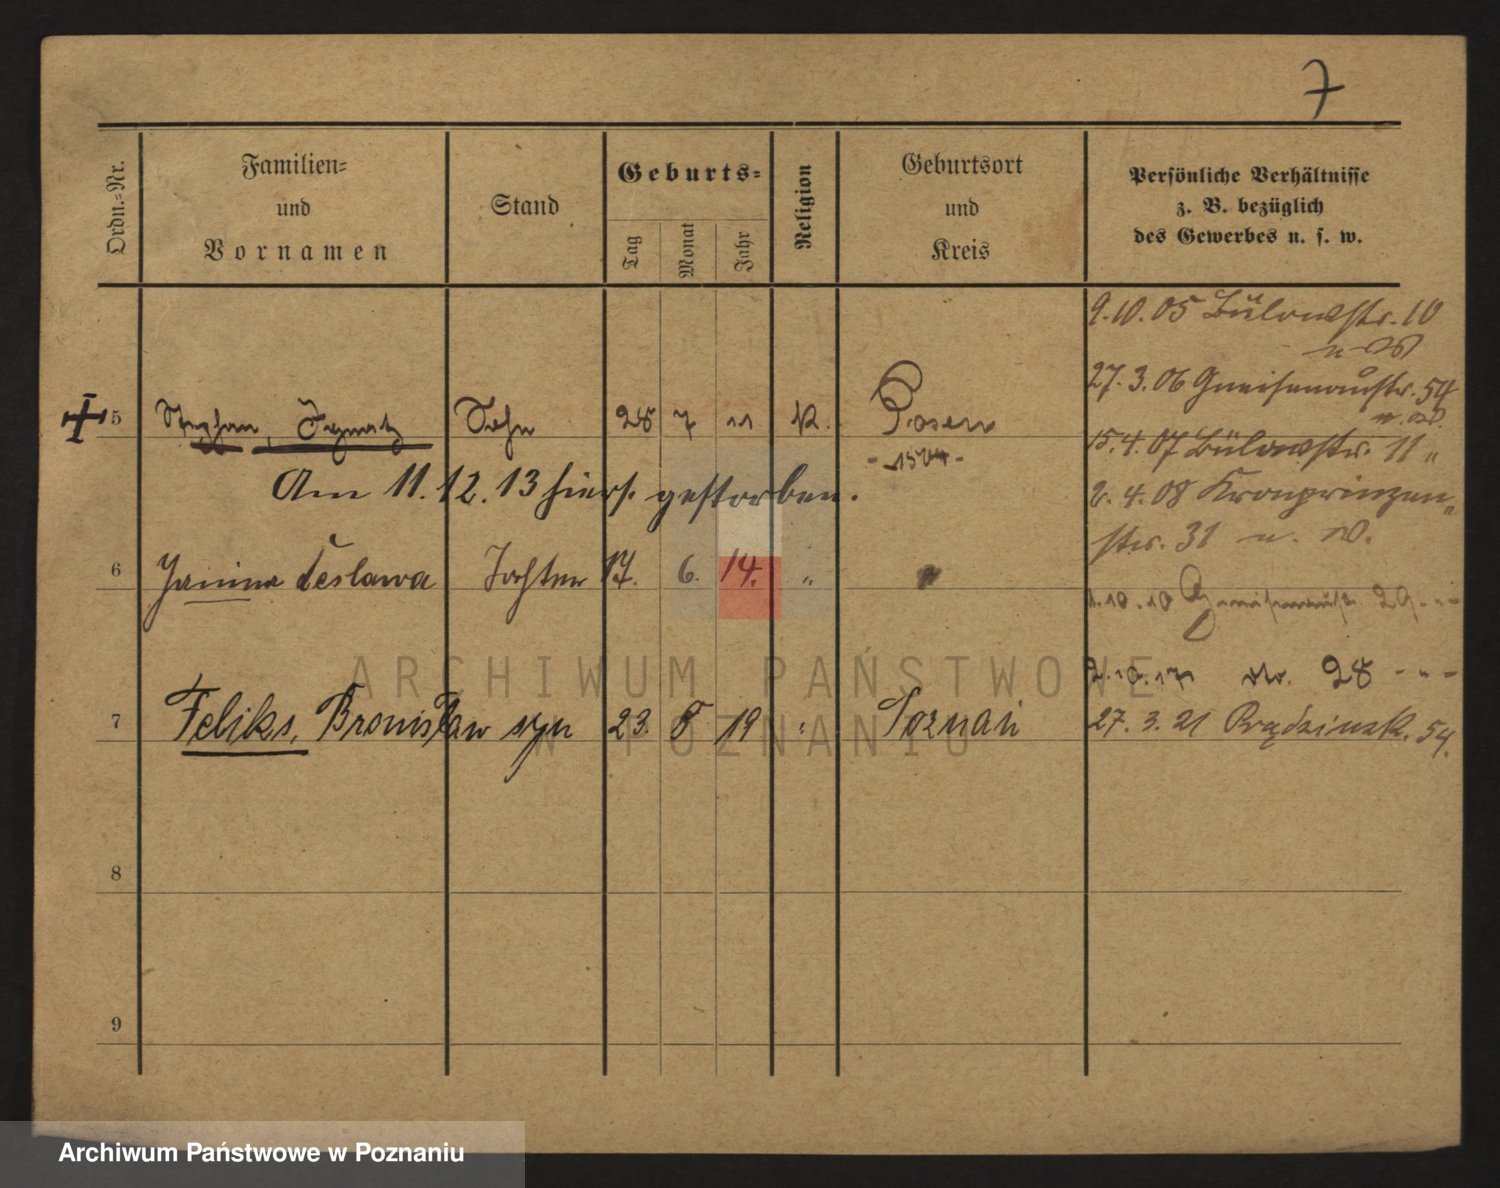 7
Ordn.-Nr.
Familien-
und
Vornamen
Stand
Geburts-
Tag
Monat
Jahr
Religion
Geburtsort
und
Kreis
Persönliche Verhältnisse
z. B. bezüglich
des Gewerbes u. s. w.
9.10.05 Bülowstr. 10
27.3.06 Gneisenaustr. 54
5 Stephan, Ignatz Sohn 28 7 11 K. Posen
15.4.07 Bülowstr. 11 "
Am 11.12.13 hier gestorben.
2.4.08 Kronprinzen-
str. 31
6 Janina Česlawa Tochter 17. 6. 14. "
1.10.10 Gneisenaustr. 29 - " -
28 - " -
7 Feliks, Bronisław syn 23. 8 19 " Poznań
27.3.21 Prądzińsk. 54.
8
9
ARCHIWUM PAŃSTWOWE
W POZNANIU
Archiwum Państwowe w Poznaniu